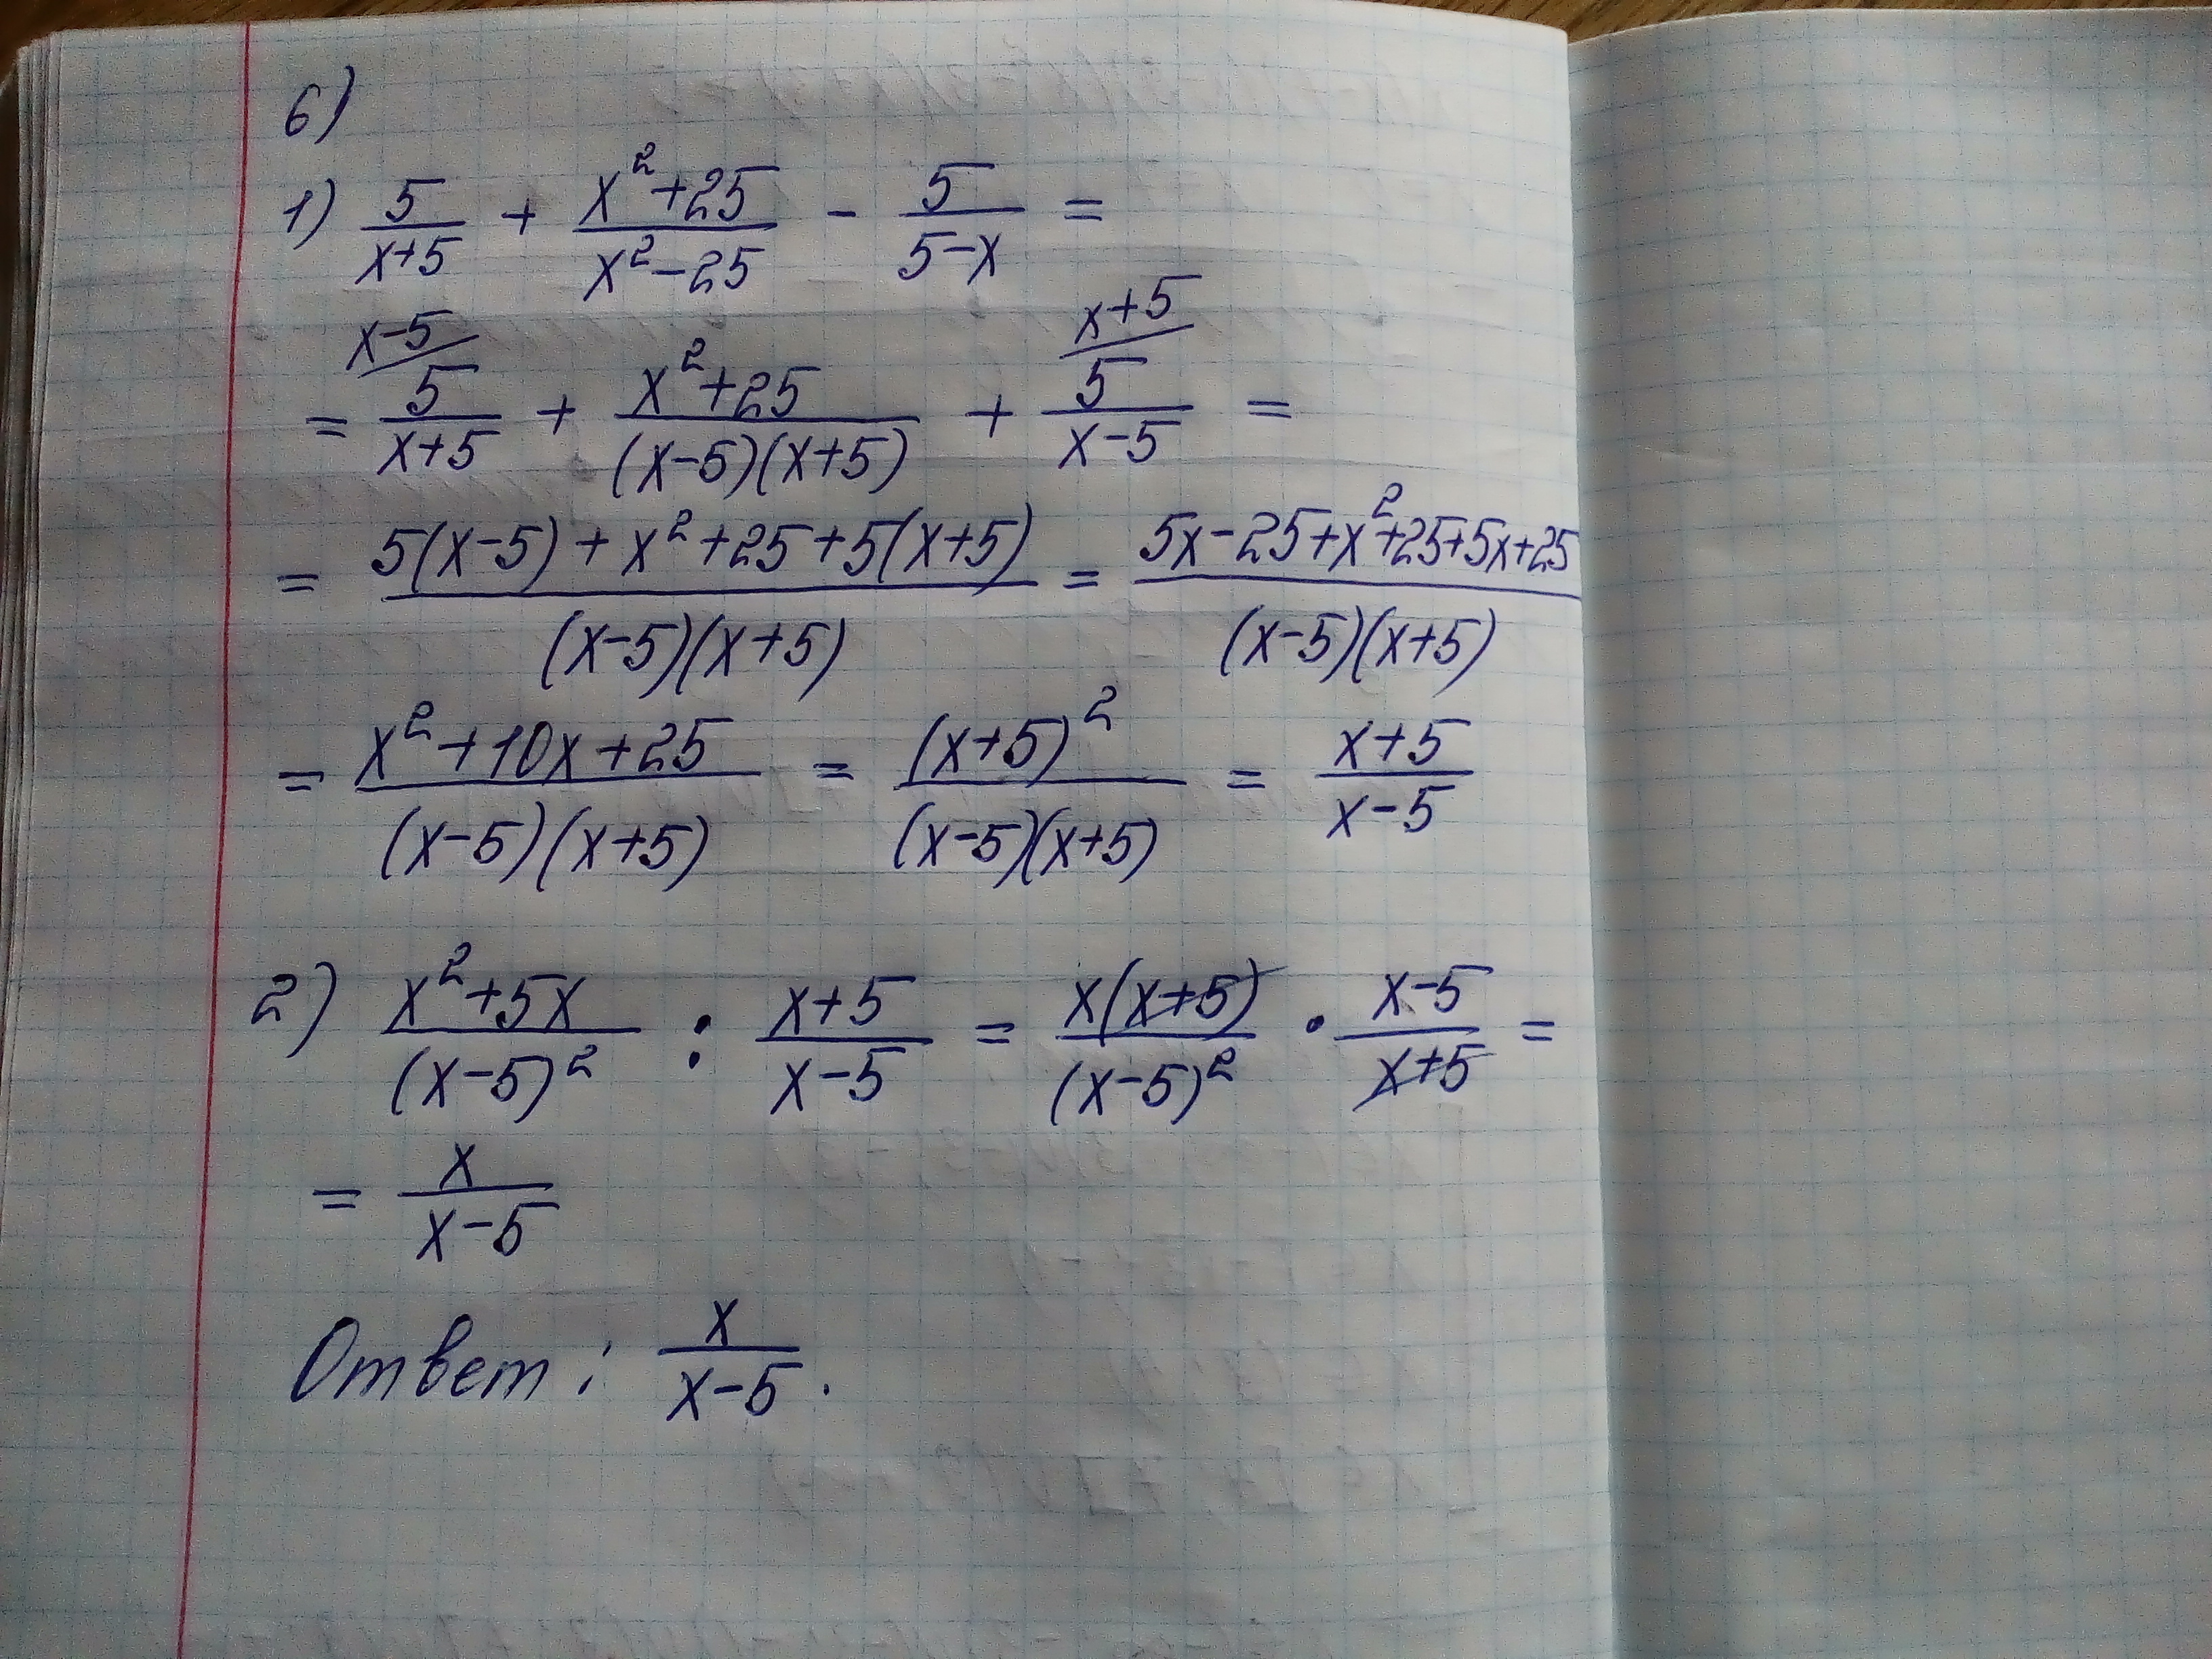 6)
1) 5/(x+5) + (x²+25)/(x²-25) - 5/(5-x) =
= 5/(x+5) (x-5/ + (x²+25)/((x-5)(x+5)) + 5/(x-5) (x+5/ =
= (5(x-5)+x²+25+5(x+5))/((x-5)(x+5)) = (5x-25+x²+25+5x+25)/((x-5)(x+5))
= (x²+10x+25)/((x-5)(x+5)) = (x+5)²/((x-5)(x+5)) = (x+5)/(x-5)
2) (x²+5x)/(x-5)² : (x+5)/(x-5) = x(x+5)/(x-5)² · (x-5)/(x+5) =
= x/(x-5)
Ответ: x/(x-5).